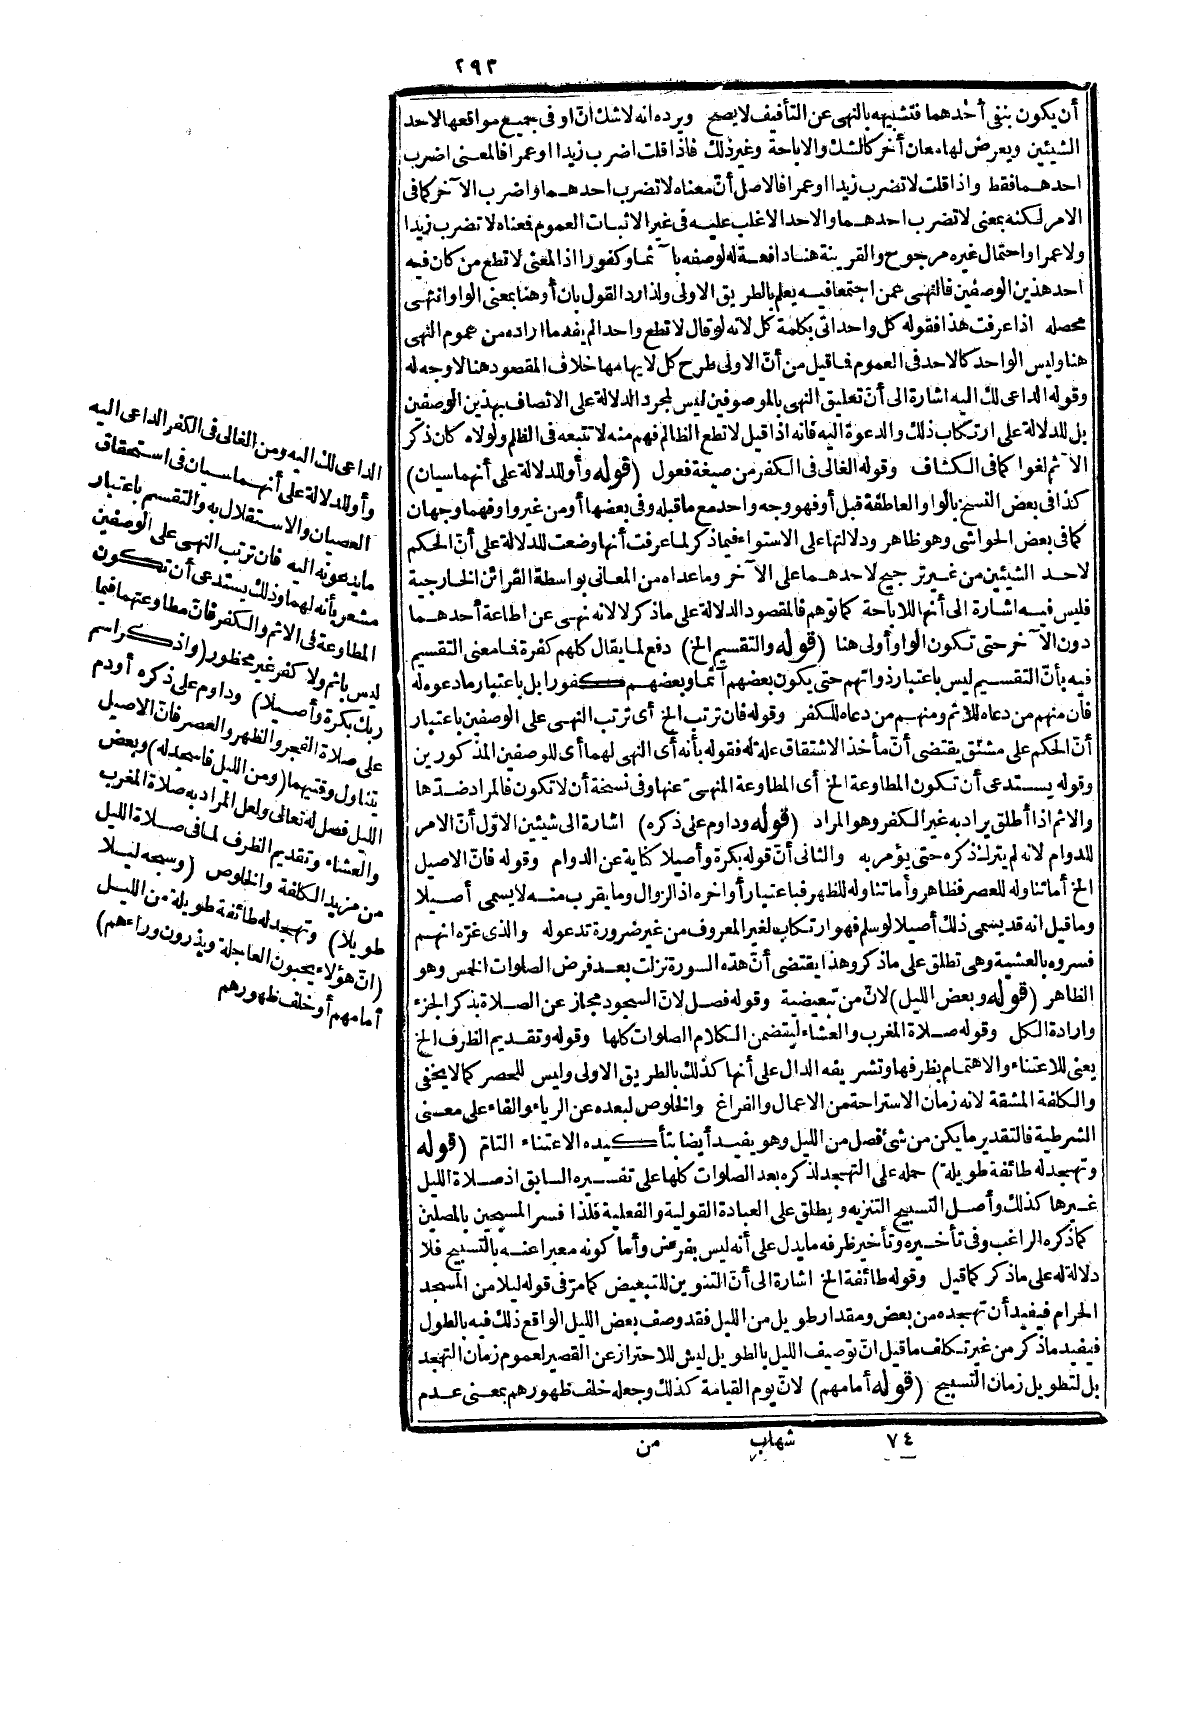 ٢٩٣
أن يكون بنفى أحدهما فتشبيهه بالنهى عن التأفيف لا يصح ويرده انه لا شك انّ او فى جميع مواقعها لاحد
الشيئين ويعرض لها معان أخر كالشك والاباحة وغير ذلك فاذا قلت اضرب زيدا او عمرا فالمعنى اضرب
احدهما فقط واذا قلت لا تضرب زيدا او عمرا فالاصل أنّ معناه لا تضرب احدهما واضرب الآخر كما فى
الامر لكنه بمعنى لا تضرب احدهما والاحد الاغلب عليه فى غير الاثبات العموم فمعناه لا تضرب زيدا
ولا عمرا واحتمال غيره مرجوح والقرينة هنا دافعة له لوصفه بآثما وكفورا اذ المعنى لا تطع من كان فيه
احد هذين الوصفين فالنهى عمن اجتمعا فيه يعلم بالطريق الاولى ولذا رد القول بان أو هنا بمعنى الواو انتهى
محصله اذا عرفت هذا فقوله كل واحد اتى بكلمة كل لانه لو قال لا تطع واحدا لم يفد ما اراده من عموم النهى
هنا وليس الواحد كالاحد فى العموم فما قيل من أنّ الاولى طرح كل لايهامها خلاف المقصود هنا لا وجه له
وقوله الداعى لك اليه اشارة الى أنّ تعليق النهى بالموصوفين ليس لمجرد الدلالة على الاتصاف بهذين الوصفين
بل للدلالة على ارتكاب ذلك والدعوة اليه فانه اذا قيل لا تطع الظالم فهم منه لا تتبعه فى الظلم ولولاه كان ذكر
الآثم لغوا كما فى الكشاف وقوله الغالى فى الكفر من صيغة فعول (قوله وأو للدلالة على أنهما سيان)
كذا فى بعض النسخ بالواو العاطفة قبل أو فهو وجه واحد مع ما قبله وفى بعضها أو من غير واو فهما وجهان
كما فى بعض الحواشى وهو ظاهر ودلالتها على الاستواء فيما ذكر لما عرفت أنها وضعت للدلالة على أنّ الحكم
لاحد الشيئين من غير ترجيح لاحدهما على الآخر وما عداه من المعانى بواسطة القرائن الخارجية
فليس فيه اشارة الى أنها للاباحة كما توهم فالمقصود الدلالة على ما ذكر لا لانه نهى عن اطاعة أحدهما
دون الآخر حتى تكون الواو أولى هنا (قوله والتقسيم الخ) دفع لما يقال كلهم كفرة فما معنى التقسيم
فيه بأنّ التقسيم ليس باعتبار ذواتهم حتى يكون بعضهم آثما وبعضهم كفورا بل باعتبار ما دعوه له
فأن منهم من دعاه للاثم ومنهم من دعاه للكفر وقوله فان ترتب الخ أى ترتب النهى على الوصفين باعتبار
أنّ الحكم على مشتق يقتضى أنّ مأخذ الاشتقاق علة له فقوله بأنه أى النهى لهما أى للوصفين المذكورين
وقوله يستدعى أن تكون المطاوعة الخ أى المطاوعة المنهىّ عنها وفى نسخة أن لا تكون فالمراد ضدّها
والاثم اذا أطلق يراد به غير الكفر وهو المراد (قوله وداوم على ذكره) اشارة الى شيئين الاوّل أنّ الامر
للدوام لانه لم يترك ذكره حتى يؤمر به والثانى أنّ قوله بكرة وأصيلا كناية عن الدوام وقوله فانّ الاصيل
الخ أما تناوله للعصر فظاهر وأما تناوله للظهر فباعتبار أواخره اذ الزوال وما يقرب منه لا يسمى أصيلا
وما قيل انه قد يسمى ذلك أصيلا لو سلم فهو ارتكاب لغير المعروف من غير ضرورة تدعوله والذى غرّه انهم
فسروه بالعشية وهى تطلق على ما ذكر وهذا يقتضى أنّ هذه السورة نزلت بعد فرض الصلوات الخمس وهو
الظاهر (قوله وبعض الليل) لانّ من تبعيضية وقوله فصل لانّ السجود مجاز عن الصلاة بذكر الجزء
وارادة الكل وقوله صلاة المغرب والعشاء ليتضمن الكلام الصلوات كلها وقوله وتقديم الظرف الخ
يعنى للاعتناء والاهتمام بظرفها وتشريفه الدال على أنها كذلك بالطريق الاولى وليس للحصر كما لا يخفى
والكلفة المشقة لانه زمان الاستراحة من الاعمال والفراغ والخلوص لبعده عن الرياء والفاء على معنى
الشرطية فالتقدير ما يكن من شئ فصل من الليل وهو يفيد أيضا بتأكيده الاعتناء التامّ (قوله
وتهجد له طائفة طويلة) حمله على التهجد لذكره بعد الصلوات كلها على تفسيره السابق اذ صلاة الليل
غيرها كذلك وأصل التسبيح التنزيه ويطلق على العبادة القولية والفعلية فلذا فسر المسبحين بالمصلين
كما ذكره الراغب وفى تأخيره وتأخير ظرفه ما يدل على أنه ليس بفرض وأما كونه معبرا عنه بالتسبيح فلا
دلالة له على ما ذكر كما قيل وقوله طائفة الخ اشارة الى أنّ التنوين للتبعيض كما مرّ فى قوله ليلا من المسجد
الحرام فيفيد أن تهجده من بعض ومقدار طويل من الليل فقد وصف بعض الليل الواقع ذلك فيه بالطول
فيفيد ما ذكر من غير تكلف ما قيل انّ توصيف الليل بالطويل ليس للاحتراز عن القصير لعموم زمان التهجد
بل لتطويل زمان التسبيح (قوله أمامهم) لانّ يوم القيامة كذلك وجعله خلف ظهورهم بمعنى عدم
الداعى لك اليه ومن الغالى فى الكفر الداعى اليه
وأو للدلالة على أنهما سيان فى استحقاق
العصيان والاستقلال به والتقسيم باعتبار
ما يدعونه اليه فان ترتب النهى على الوصفين
مشعر بأنه لهما وذلك يستدعى أن تكون
المطاوعة فى الاثم والكفر فانّ مطاوعتهما فيما
ليس باثم ولا كفر غير محظور (واذكر اسم
ربك بكرة وأصيلا) وداوم على ذكره أو دم
على صلاة الفجر والظهر والعصر فانّ الاصيل
يتناول وقتيهما (ومن الليل فاسجد له) وبعض
الليل فصل له تعالى ولعل المراد به صلاة المغرب
والعشاء وتقديم الظرف لما فى صلاة الليل
من مزيد الكلفة والخلوص (وسبحه ليلا
طويلا) وتهجد له طائفة طويلة من الليل
(انّ هؤلاء يحبون العاجلة ويذرون وراءهم)
أمامهم أو خلف ظهورهم
٧٤ شهاب من